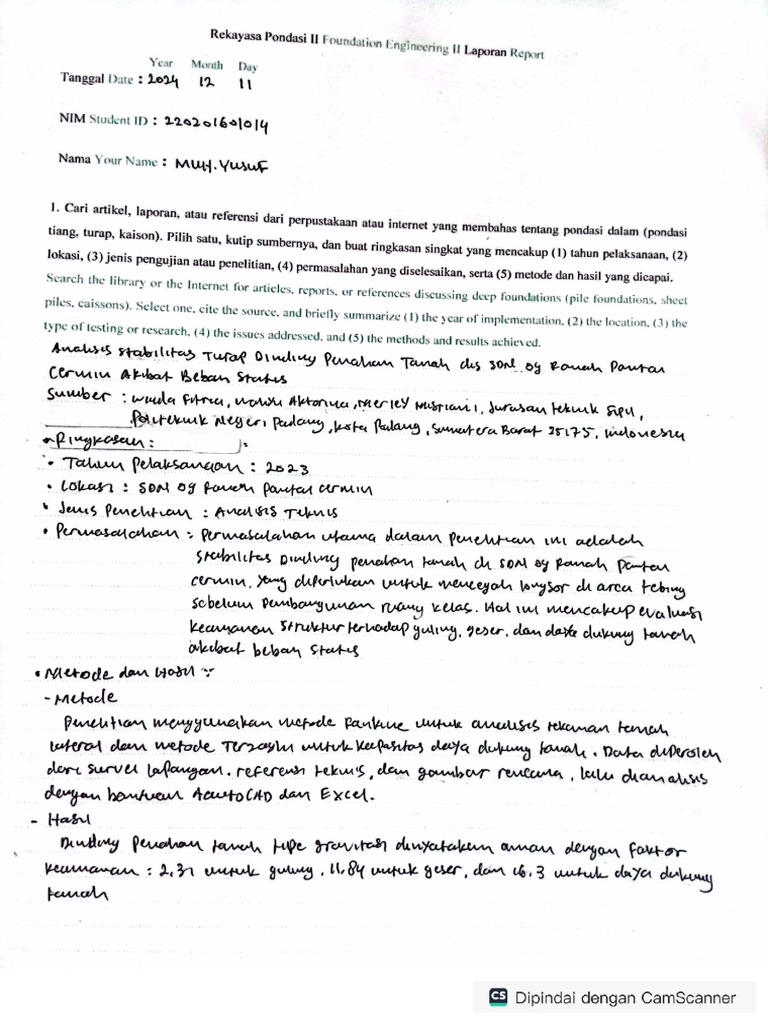 Rekayasa Pondasi II Foundation Engineering II Laporan Report
Year Month Day
Tanggal Date : 2024 12 11
NIM Student ID : 220201601014
Nama Your Name : MUH. YUSUF
1. Cari artikel, laporan, atau referensi dari perpustakaan atau internet yang membahas tentang pondasi dalam (pondasi
tiang, turap, kaison). Pilih satu, kutip sumbernya, dan buat ringkasan singkat yang mencakup (1) tahun pelaksanaan, (2)
lokasi, (3) jenis pengujian atau penelitian, (4) permasalahan yang diselesaikan, serta (5) metode dan hasil yang dicapai.
Search the library or the Internet for articles, reports, or references discussing deep foundations (pile foundations, sheet
piles, caissons). Select one, cite the source, and briefly summarize (1) the year of implementation, (2) the location, (3) the
type of testing or research, (4) the issues addressed, and (5) the methods and results achieved.
Analisis Stabilitas Turap Dinding Penahan Tanah SDN 09 Ranah Pantai
Cermin Akibat Beban Statis
Sumber : Fitria, , Jurusan teknik Sipil,
Politeknik Negeri Padang, Kota Padang, Sumatera Barat 25175, Indonesia
Ringkasan :
• Tahun Pelaksanaan : 2023
• Lokasi : SDN 09 Ranah Pantai cermin
• Jenis Penelitian : Analisis Teknis
• Permasalahan : Permasalahan utama dalam penelitian ini adalah
Stabilitas Dinding penahan tanah di SDN 09 Ranah Pantai
cermin, yang diperlukan untuk mencegah longsor di area tebing
sebelum Pembangunan ruang kelas. Hal ini mencakup evaluasi
keamanan Struktur terhadap guling, geser, dan daya dukung tanah
akibat beban Statis
• Metode dan Hasil :
- Metode
Penelitian menggunakan metode Rankine untuk analisis tekanan tanah
lateral dan metode Terzaghi untuk kapasitas daya dukung tanah. Data diperoleh
dari survei lapangan, referensi teknis, dan gambar rencana, lalu dianalisis
dengan bantuan AutoCAD dan Excel.
- Hasil
Dinding Penahan tanah tipe gravitasi dinyatakan aman dengan faktor
keamanan : 2,31 untuk guling, 11,84 untuk geser, dan 16,3 untuk daya dukung
tanah
CS Dipindai dengan CamScanner